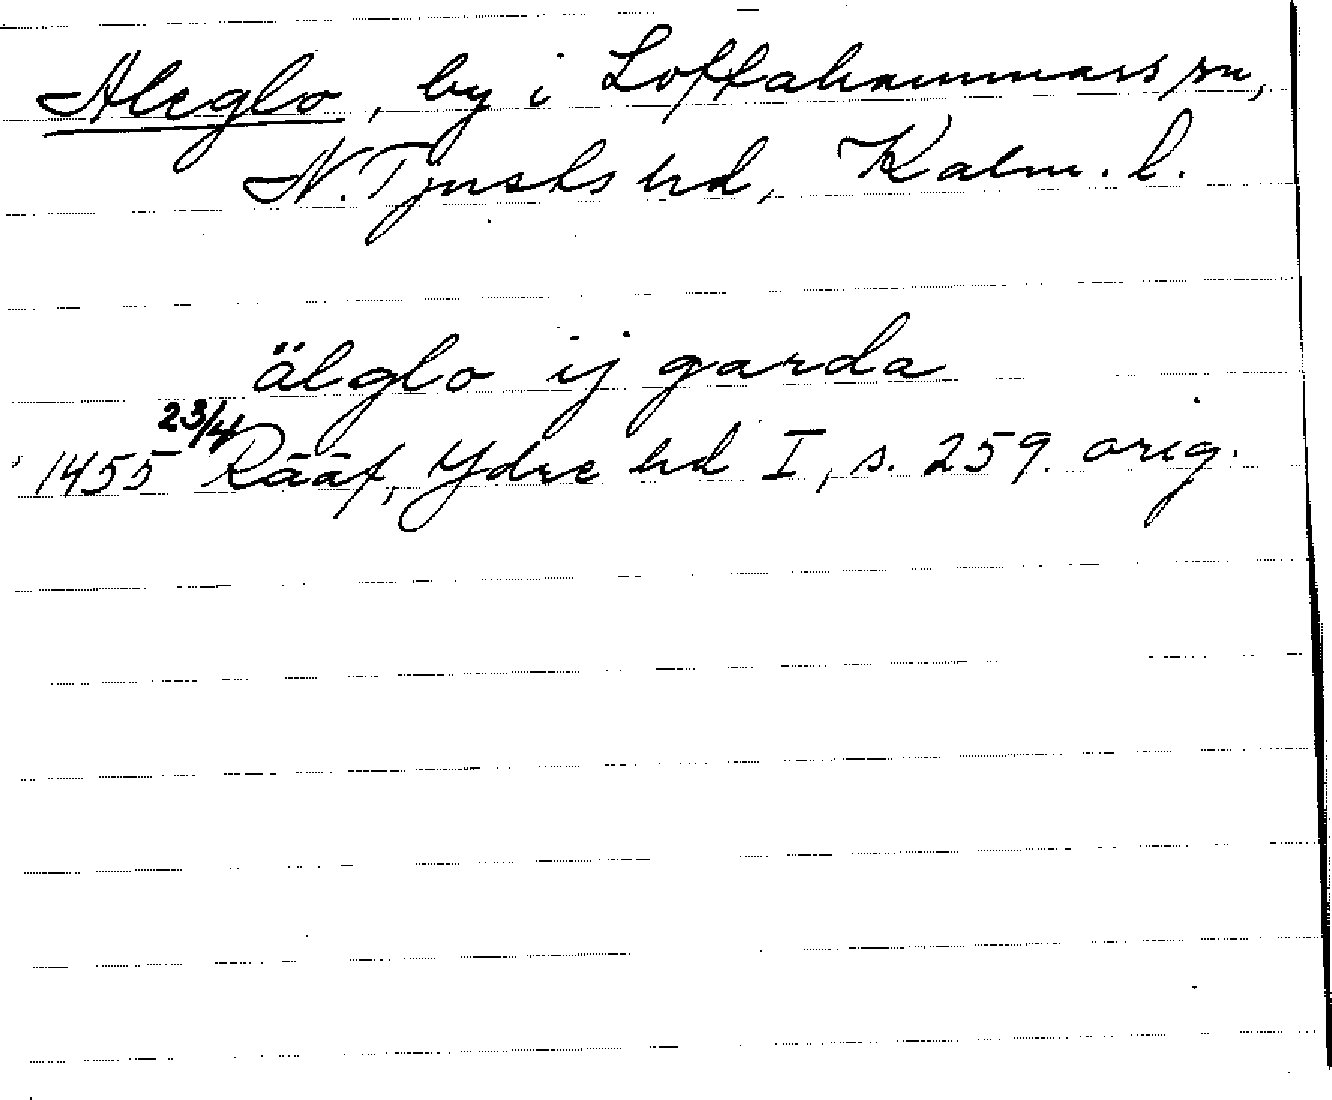 Aleglo, by i Loftahammars sn,
N. Tjusts hd, Kalm. l.
älglo ij garda
1455 23/4 Rääf, Ydre hd I, s. 259. orig.